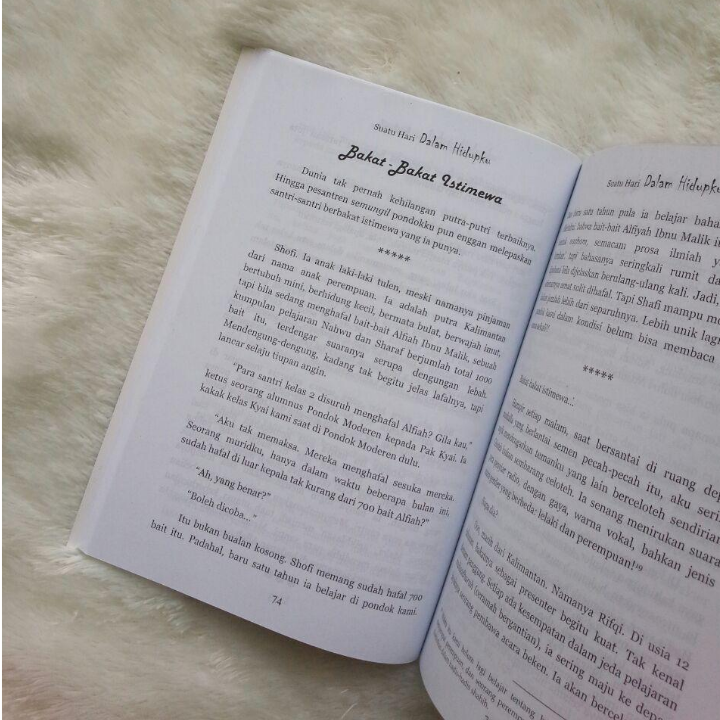 Suatu Hari Dalam Hidupku
Bakat-Bakat Istimewa
Dunia tak pernah kehilangan putra-putri terbaiknya,
Hingga pesantren semungil pondokku pun enggan melepaskan
santri-santri berbakat istimewa yang ia punya.
*****
Shofi. Ia anak laki-laki tulen, meski namanya pinjaman
dari nama anak perempuan. Ia adalah putra Kalimantan
bertubuh mini, berhidung kecil, bermata bulat, berwajah imut,
tapi bila sedang menghafal bait-bait Alfiah Ibnu Malik, sebuah
kumpulan pelajaran Nahwu dan Sharaf berjumlah total 1000
bait itu, terdengar suaranya serupa dengungan lebah.
Mendengung-dengung, kadang tak begitu jelas lafalnya, tapi
lancar selaju tiupan angin.
"Para santri kelas 2 disuruh menghafal Alfiah? Gila kau."
ketus seorang alumnus Pondok Moderen kepada Pak Kyai. Ia
kakak kelas Kyai kami saat di Pondok Moderen dulu.
"Aku tak memaksa. Mereka menghafal sesuka mereka.
Seorang muridku, hanya dalam waktu beberapa bulan ini,
sudah hafal di luar kepala tak kurang dari 700 bait Alfiah?"
"Ah, yang benar?"
"Boleh dicoba..."
Itu bukan bualan kosong. Shofi memang sudah hafal 700
bait itu. Padahal, baru satu tahun ia belajar di pondok kami.
74
Suatu Hari Dalam Hidupku
satu tahun pula ia belajar baha
bahwa bait-bait Alfiyah Ibnu Malik i
semacam prosa ilmiah y
tapi bahasanya seringkali rumit da
dijelaskan berulang-ulang kali. Jadi,
untuk dihafal. Tapi Shafi mampu me
lebih dari separuhnya. Lebih unik lagi
dalam kondisi belum bisa membaca
*****
bakat istimewa...!
setiap malam, saat bersantai di ruang dep
yang berlantai semen pecah-pecah itu, aku seri
temanku yang lain berceloteh sendirian
sembarang celoteh. Ia senang menirukan suara
radio, dengan gaya, warna vokal, bahkan jenis
yang berbeda: lelaki dan perempuan!
masih dari Kalimantan. Namanya Rifqi. Di usia 12
bakatnya sebagai presenter begitu kuat. Tak kenal
Setiap ada kesempatan dalam jeda pelajaran
(ceramah bergantian), ia sering maju ke dep
pembawa acara beken. Ia akan bercelo